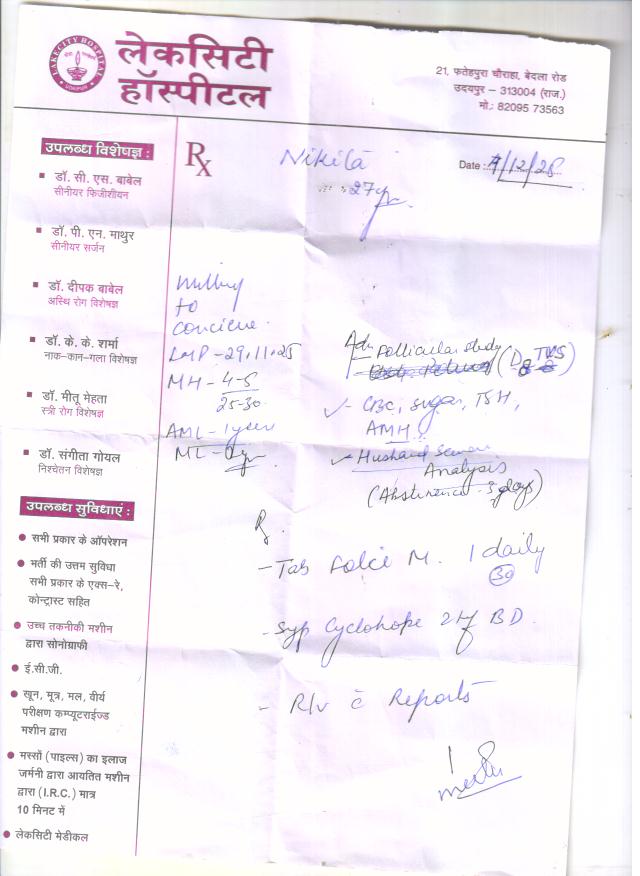 लेकसिटी
हॉस्पीटल
LAKECITY HOSPITAL
UDAIPUR
21, फतेहपुरा चौराहा, बेदला रोड
उदयपुर – 313004 (राज.)
मो.: 82095 73563
Rx
Nikita
Date :
27yr
उपलब्ध विशेषज्ञ :
डॉ. सी. एस. बाबेल
सीनीयर फिजीशीयन
डॉ. पी. एन. माथुर
सीनीयर सर्जन
डॉ. दीपक बाबेल
अस्थि रोग विशेषज्ञ
डॉ. के. के. शर्मा
नाक-कान-गला विशेषज्ञ
डॉ. मीतू मेहता
स्त्री रोग विशेषज्ञ
डॉ. संगीता गोयल
निश्चेतन विशेषज्ञ
उपलब्ध सुविधाएं :
सभी प्रकार के ऑपरेशन
भर्ती की उत्तम सुविधा
सभी प्रकार के एक्स-रे,
कोन्ट्रास्ट सहित
उच्च तकनीकी मशीन
द्वारा सोनोग्राफी
ई.सी.जी.
खून, मूत्र, मल, वीर्य
परीक्षण कम्प्यूटराईज्ड
मशीन द्वारा
मस्सों (पाइल्स) का इलाज
जर्मनी द्वारा आयतित मशीन
द्वारा (I.R.C.) मात्र
10 मिनट में
लेकसिटी मेडीकल
to
concieve.
LMP - 29.11.25
MH - 4-5
25-30
AML - 1 year
ML -
Adv Follicular study
TVS
CBC, Sugar, TSH,
AMH.
Husband Semen
Analysis
(Abstinence - 3 days)
R
- Tab Folci M. 1 daily
30
- Syp Cyclohope 2tsf BD
- R/v c̄ Reports